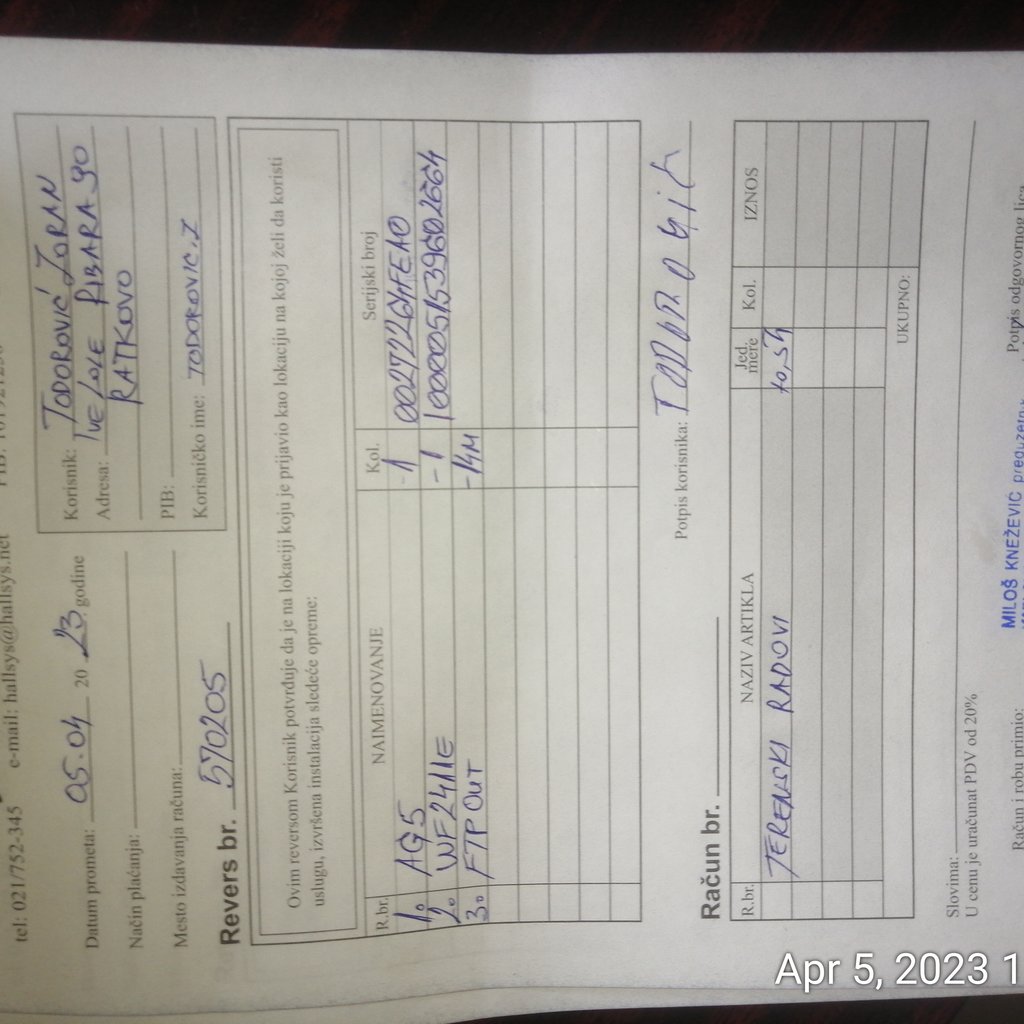 tel: 021/752-345 e-mail: hallsys@hallsys.net
Datum prometa: 05.04 2023. godine
Način plaćanja:
Mesto izdavanja računa:
Korisnik: TODOROVIĆ ZORAN
Adresa: IVE LOLE RIBARA 90
RATKOVO
PIB:
Korisničko ime: TODOROVIC.Z
Revers br. 570205
Ovim reversom Korisnik potvrđuje da je na lokaciji koju je prijavio kao lokaciju na kojoj želi da koristi
uslugu, izvršena instalacija sledeće opreme:
R.br. NAIMENOVANJE Kol. Serijski broj
1. AG5 -1 00272264FEA0
2. WF2411E -1
3. FTP OUT -14M
Potpis korisnika:
Račun br.
R.br. NAZIV ARTIKLA Jed. mere Kol. IZNOS
TERENSKI RADOVI
UKUPNO:
Slovima:
U cenu je uračunat PDV od 20%
Račun i robu primio: Potpis odgovornog lica
MILOŠ KNEŽEVIĆ
Apr 5, 2023 1